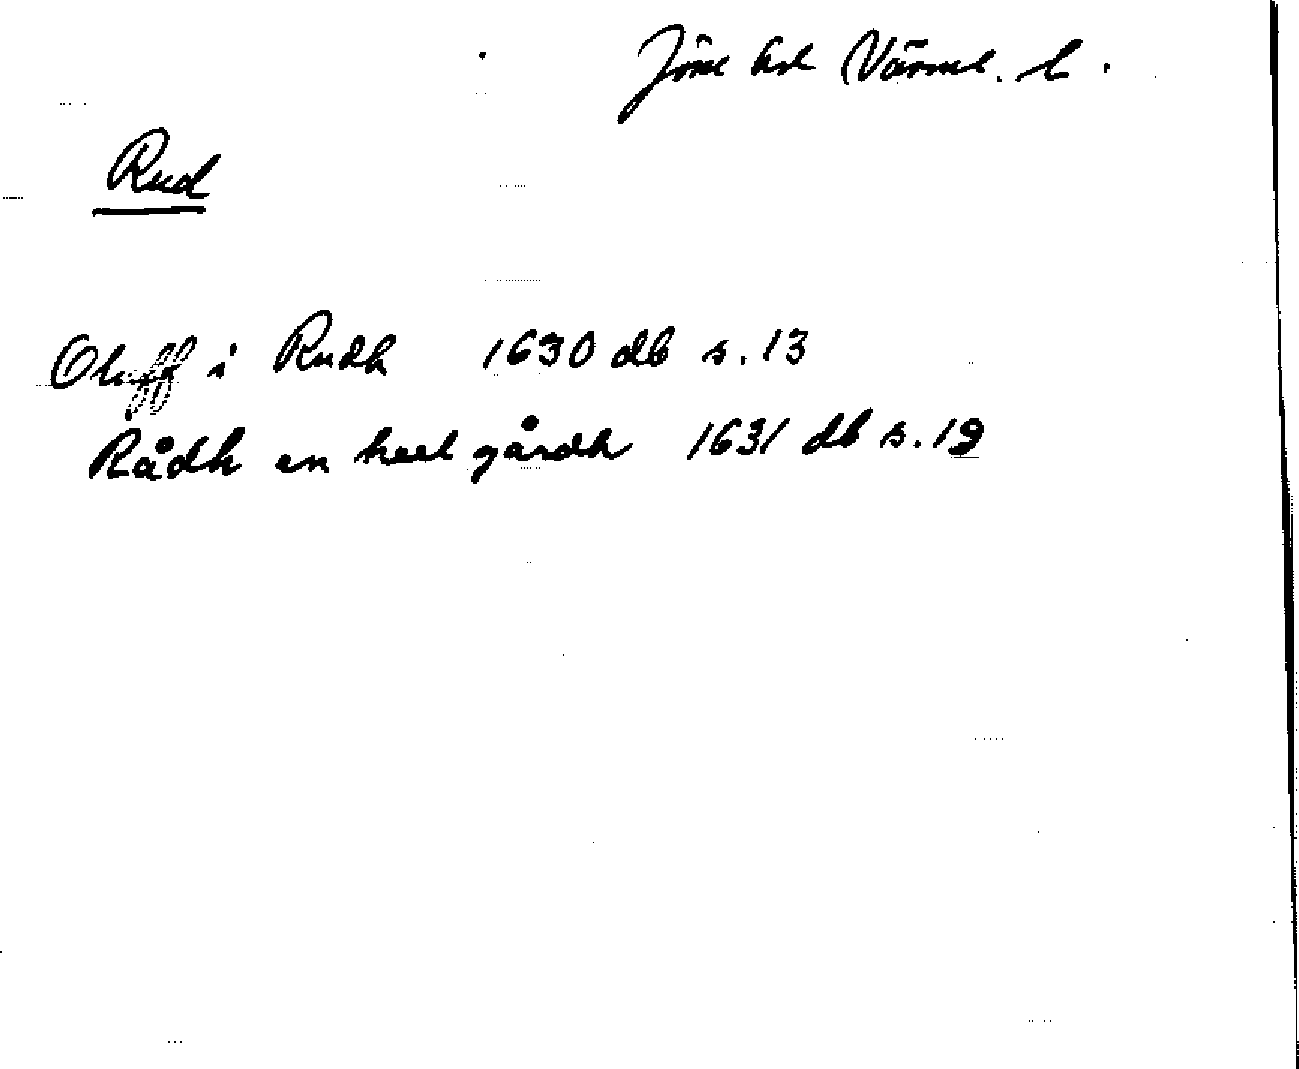 Jöse hd Värml. l.
Rud
Oluff i Rudh 1630 db s. 13
Rådh en heel gårdh 1631 db s. 19